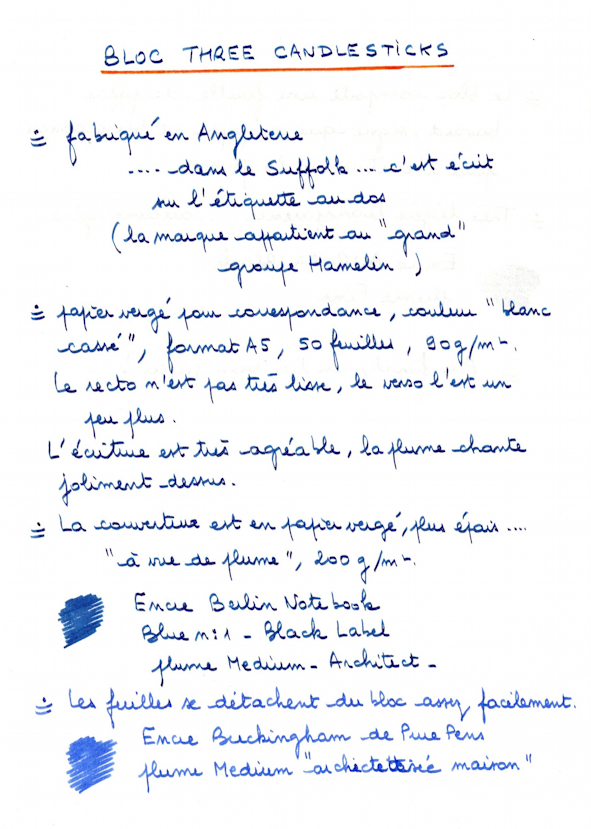 BLOC THREE CANDLESTICKS
÷ fabriqué en Angleterre
.... dans le Suffolk ... c'est écrit
sur l'étiquette au dos
(la marque appartient au "grand"
groupe Hamelin )
÷ papier vergé pour correspondance, couleur "blanc
cassé", format A5, 50 feuilles, 90g/m².
Le recto n'est pas très lisse, le verso l'est un
peu plus.
L'écriture est très agréable, la plume chante
joliment dessus.
÷ La couverture est en papier vergé, plus épais ....
"à vue de plume", 200 g/m².
Encre Berlin Notebook
Blue n:1 - Black Label
plume Medium - Architect -
÷ Les feuilles se détachent du bloc assez facilement.
Encre Buckingham de Pure Pens
plume Medium "maison"